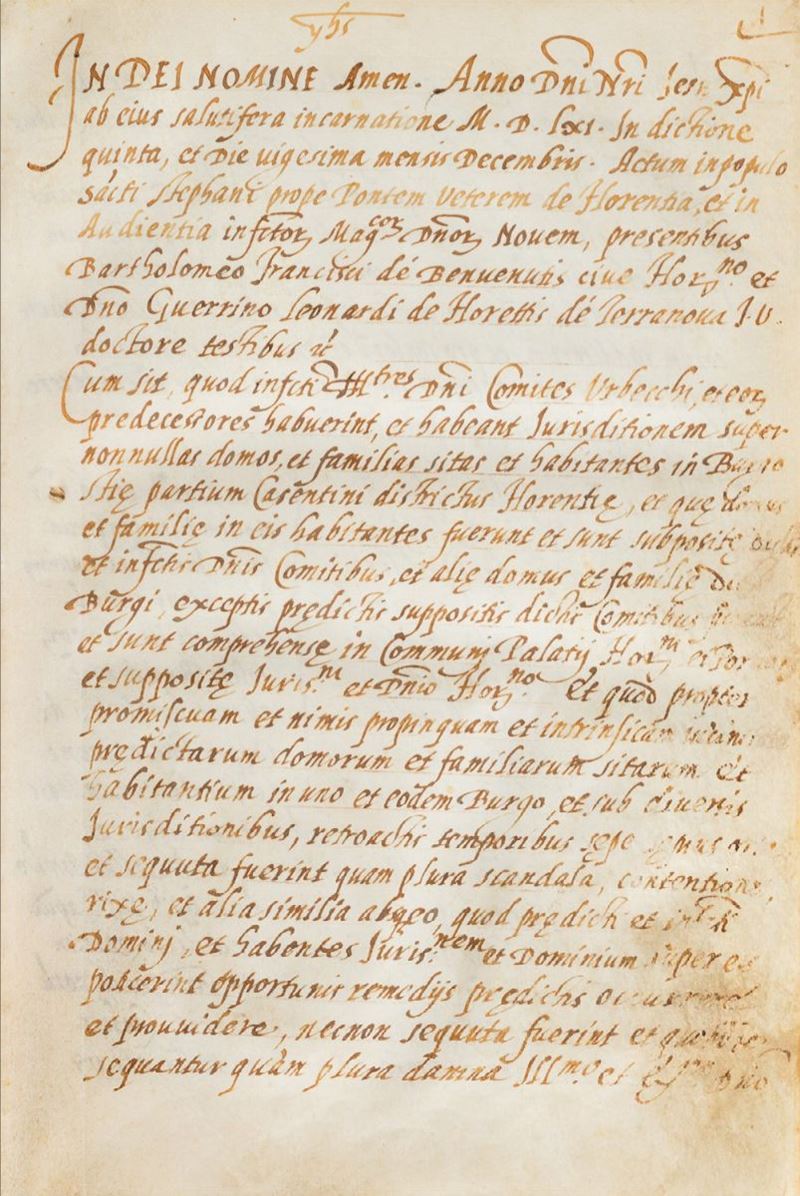 yhs
1
IN DEI NOMINE Amen. Anno Dni Nri Jesu Xpi
ab eius salutifera incarnatione M. D. lxi. Indictione
quinta, et Die vigesima mensis Decembris. Actum in populo
sācti Stephani prope Pontem Veterem de Florentia, et in
Audientia infctor, Magcor Dnor, Novem, presentibus
Bartholomeo Francisci dé Benvenutis cive Florno. et
Dno Guerrino Leonardi de Florettis dé Terranova I. V.
doctore testibus
Cum sit, quod infcti Illtres. Dni Comites Urbecchi, et eor,
predecessores habuerint, et habeant Jurisditionem super
nonnullas domos, et familias sitas et habitantes in Burgo
Stię partium Casentini districtus Florentię, et quę domus
et familię in eis habitantes fuerunt et sunt subpositę
et infctis Dnis Comitibus, et alię domus et familię
Burgi, exceptis prędictis suppositis dictis Comitibus
et sunt comprehensę in Communj Palatij Florni et
et suppositę Juris.ni et Dnio Flor.no. Et quòd propter
promiscuam et nimis propinquam et intrinsicam
prędictarum domorum et familiarum sitarum et
habitantium in uno et eodem Burgo, et sub diversis
Jurisditionibus, retroactis temporibus sępe
et sequuta fuerint quam plura scandala, contentiones,
rixę, et alia similia absqeo, quod prędicti et
Dominj, et habentes Juris.nem et Dominium super
potuerint opportunis remedijs prędictis occurrere
et providere, necnon sequuta fuerint et
sequantur quàm plura damna Illmo. et Dno